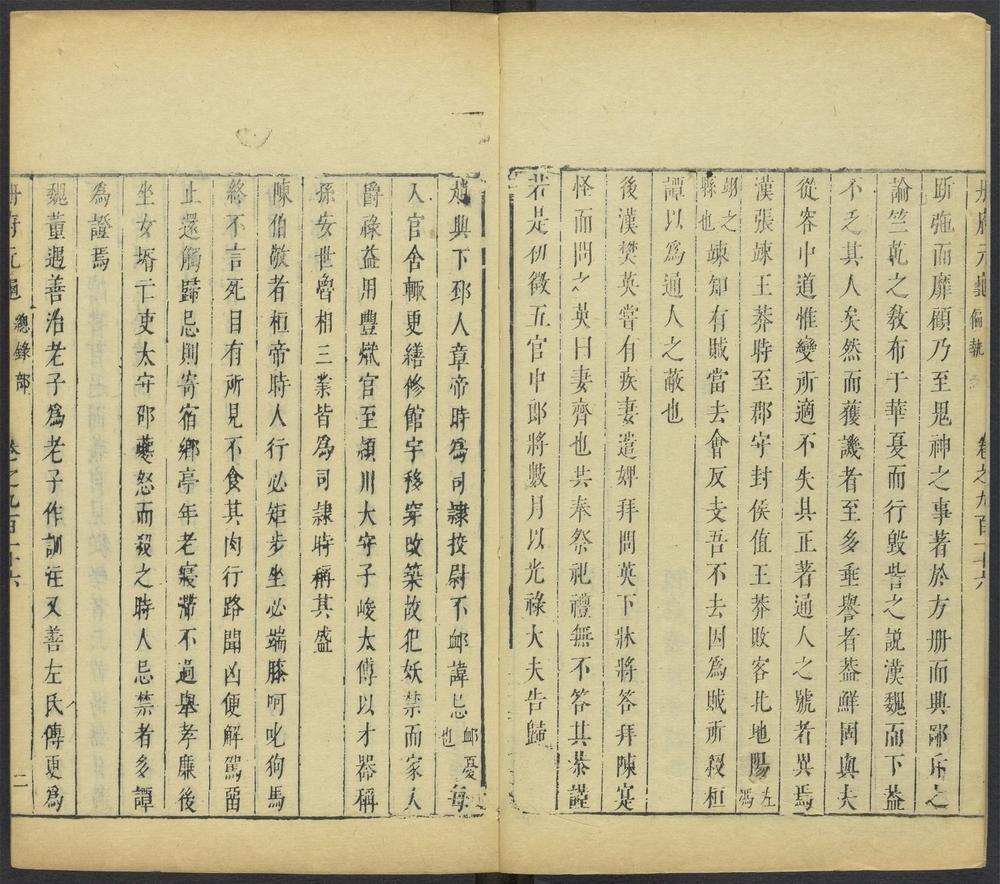 冊府元龜 偏執 卷之九百一十六
斷弛而靡顧乃至鬼神之事著於方册而興鄙斥之
論竺乾之教布于華夏而行毀訾之説漢魏而下葢
不乏其人矣然而獲譏者至多垂譽者葢鮮固與夫
從容中道惟變所適不失其正著通人之號者異焉
漢張竦王莽時至郡守封侯值王莽敗客北地陽左馮
翊之縣也竦知有賊當去會反支吾不去因爲賊所殺桓
譚以爲通人之蔽也
後漢樊英嘗有疾妻遣婢拜問英下牀將答拜陳寔
怪而問之英曰妻齊也共奉祭祀禮無不答其恭謹
若是初徵五官中郎將數月以光祿大夫告歸
趙興下邳人章帝時爲司隷挍尉不邺諱忌邺憂也每
入官舍輒更繕修館宇移穿改築故犯妖禁而家人
爵祿益用豐熾官至頴川大守子峻太傅以才器稱
孫安世魯相三葉皆爲司隷時稱其盛
陳伯敬者桓帝時人行必矩步坐必端膝呵叱狗馬
終不言死目有所見不食其肉行路聞凶便解駕畱
止還觸歸忌則寄宿鄉亭年老寢滯不過舉孝廉後
坐女壻亡吏太守邵夔怒而殺之時人忌禁者多譚
爲證焉
魏董遇善治老子爲老子作訓注又善左氏傳更爲
冊府元龜 總錄部 卷之九百一十六 二